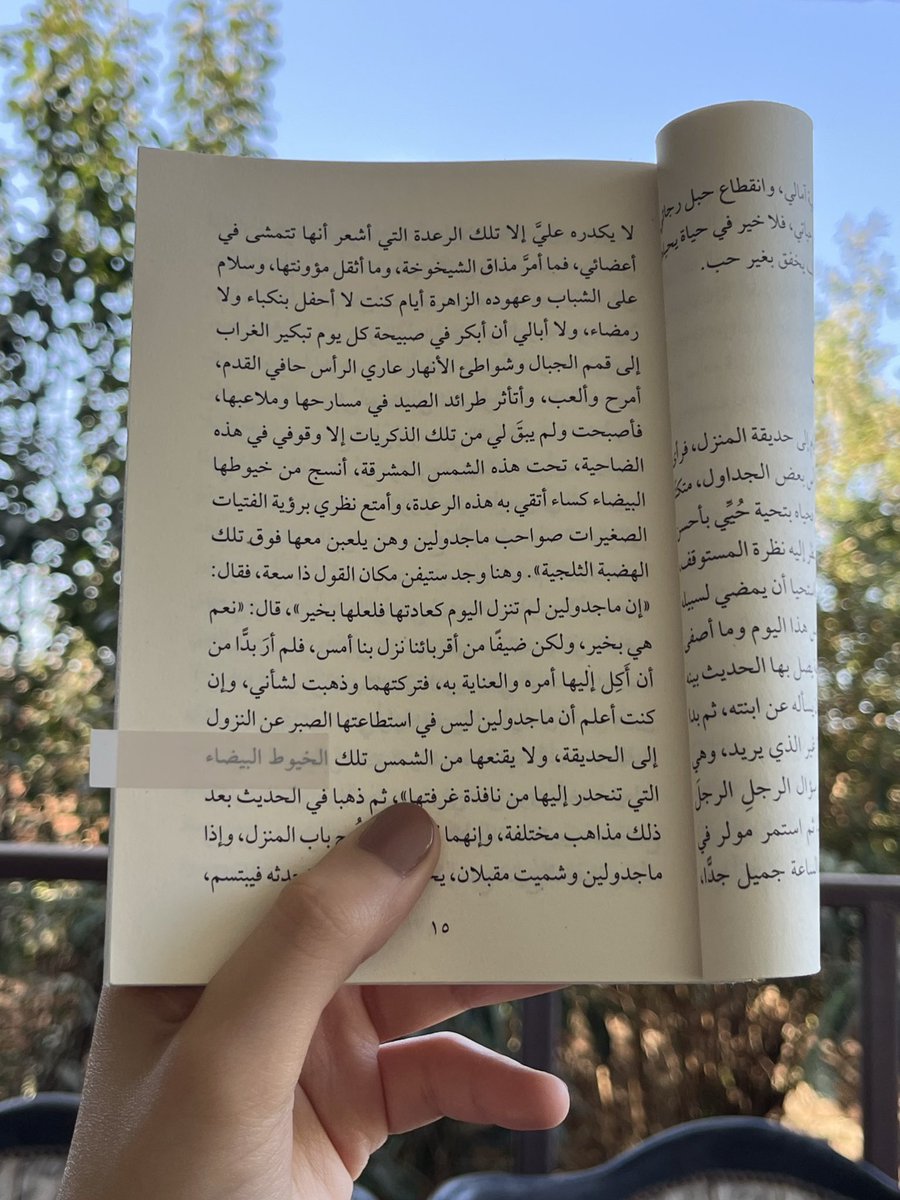 لا يكدره عليَّ إلا تلك الرعدة التي أشعر أنها تتمشى في
أعضائي، فما أمرَّ مذاق الشيخوخة، وما أثقل مؤونتها، وسلام
على الشباب وعهوده الزاهرة أيام كنت لا أحفل بنكباء ولا
رمضاء، ولا أبالي أن أبكر في صبيحة كل يوم تبكير الغراب
إلى قمم الجبال وشواطئ الأنهار عاري الرأس حافي القدم،
أمرح وألعب، وأتأثر طرائد الصيد في مسارحها وملاعبها،
فأصبحت ولم يبقَ لي من تلك الذكريات إلا وقوفي في هذه
الضاحية، تحت هذه الشمس المشرقة، أنسج من خيوطها
البيضاء كساء أتقي به هذه الرعدة، وأمتع نظري برؤية الفتيات
الصغيرات صواحب ماجدولين وهن يلعبن معها فوق تلك
الهضبة الثلجية». وهنا وجد ستيفن مكان القول ذا سعة، فقال:
«إن ماجدولين لم تنزل اليوم كعادتها فلعلها بخير»، قال: «نعم
هي بخير، ولكن ضيفًا من أقربائنا نزل بنا أمس، فلم أرَ بدًّا من
أن أَكِل إليها أمره والعناية به، فتركتهما وذهبت لشأني، وإن
كنت أعلم أن ماجدولين ليس في استطاعتها الصبر عن النزول
إلى الحديقة، ولا يقنعها من الشمس تلك الخيوط البيضاء
التي تنحدر إليها من نافذة غرفتها»، ثم ذهبا في الحديث بعد
ذلك مذاهب مختلفة، وإنهما باب المنزل، وإذا
ماجدولين وشميت مقبلان، فيبتسم،
١٥
آمالي، وانقطاع حبل
فلا خير في حياة
يخفق بغير حب.
حديقة المنزل،
بعض الجداول،
بتحية حُيِّي
إليه نظرة
أن يمضي
هذا اليوم وما
بها الحديث
عن ابنته، ثم
الذي يريد، وهي
الرجلِ
ثم استمر مولر في
جميل جدًّا،